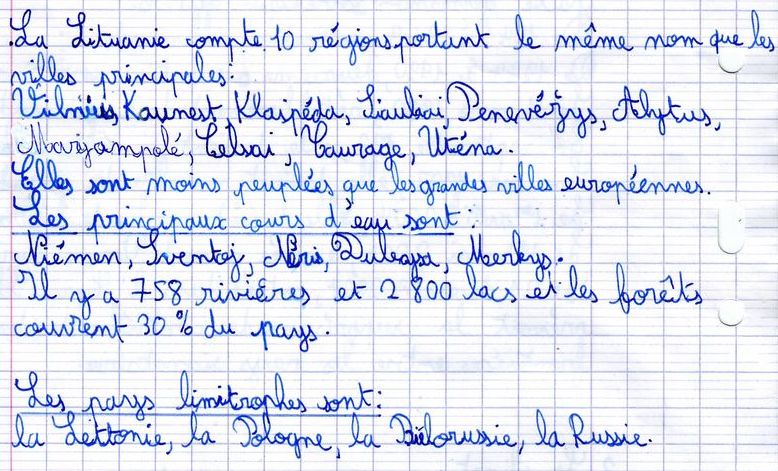 .La Lituanie compte 10 régions portant le même nom que les
villes principales:
Vilnius, Kaunest, Klaipéda, Siauliai, Penevéžys, Alytus,
Marijampolé, Telsai, Taurage, Uténa.
Elles sont moins peuplées que les grandes villes européennes.
Les principaux cours d'eau sont:
Niémen, Sventoj, Néris, Dubaysa, Merkys.
Il y a 758 riviéres et 2 800 lacs et les forêts
couvrent 30 % du pays.
Les pays limitrophes sont:
la Lettonie, la Pologne, la Biélorussie, la Russie.